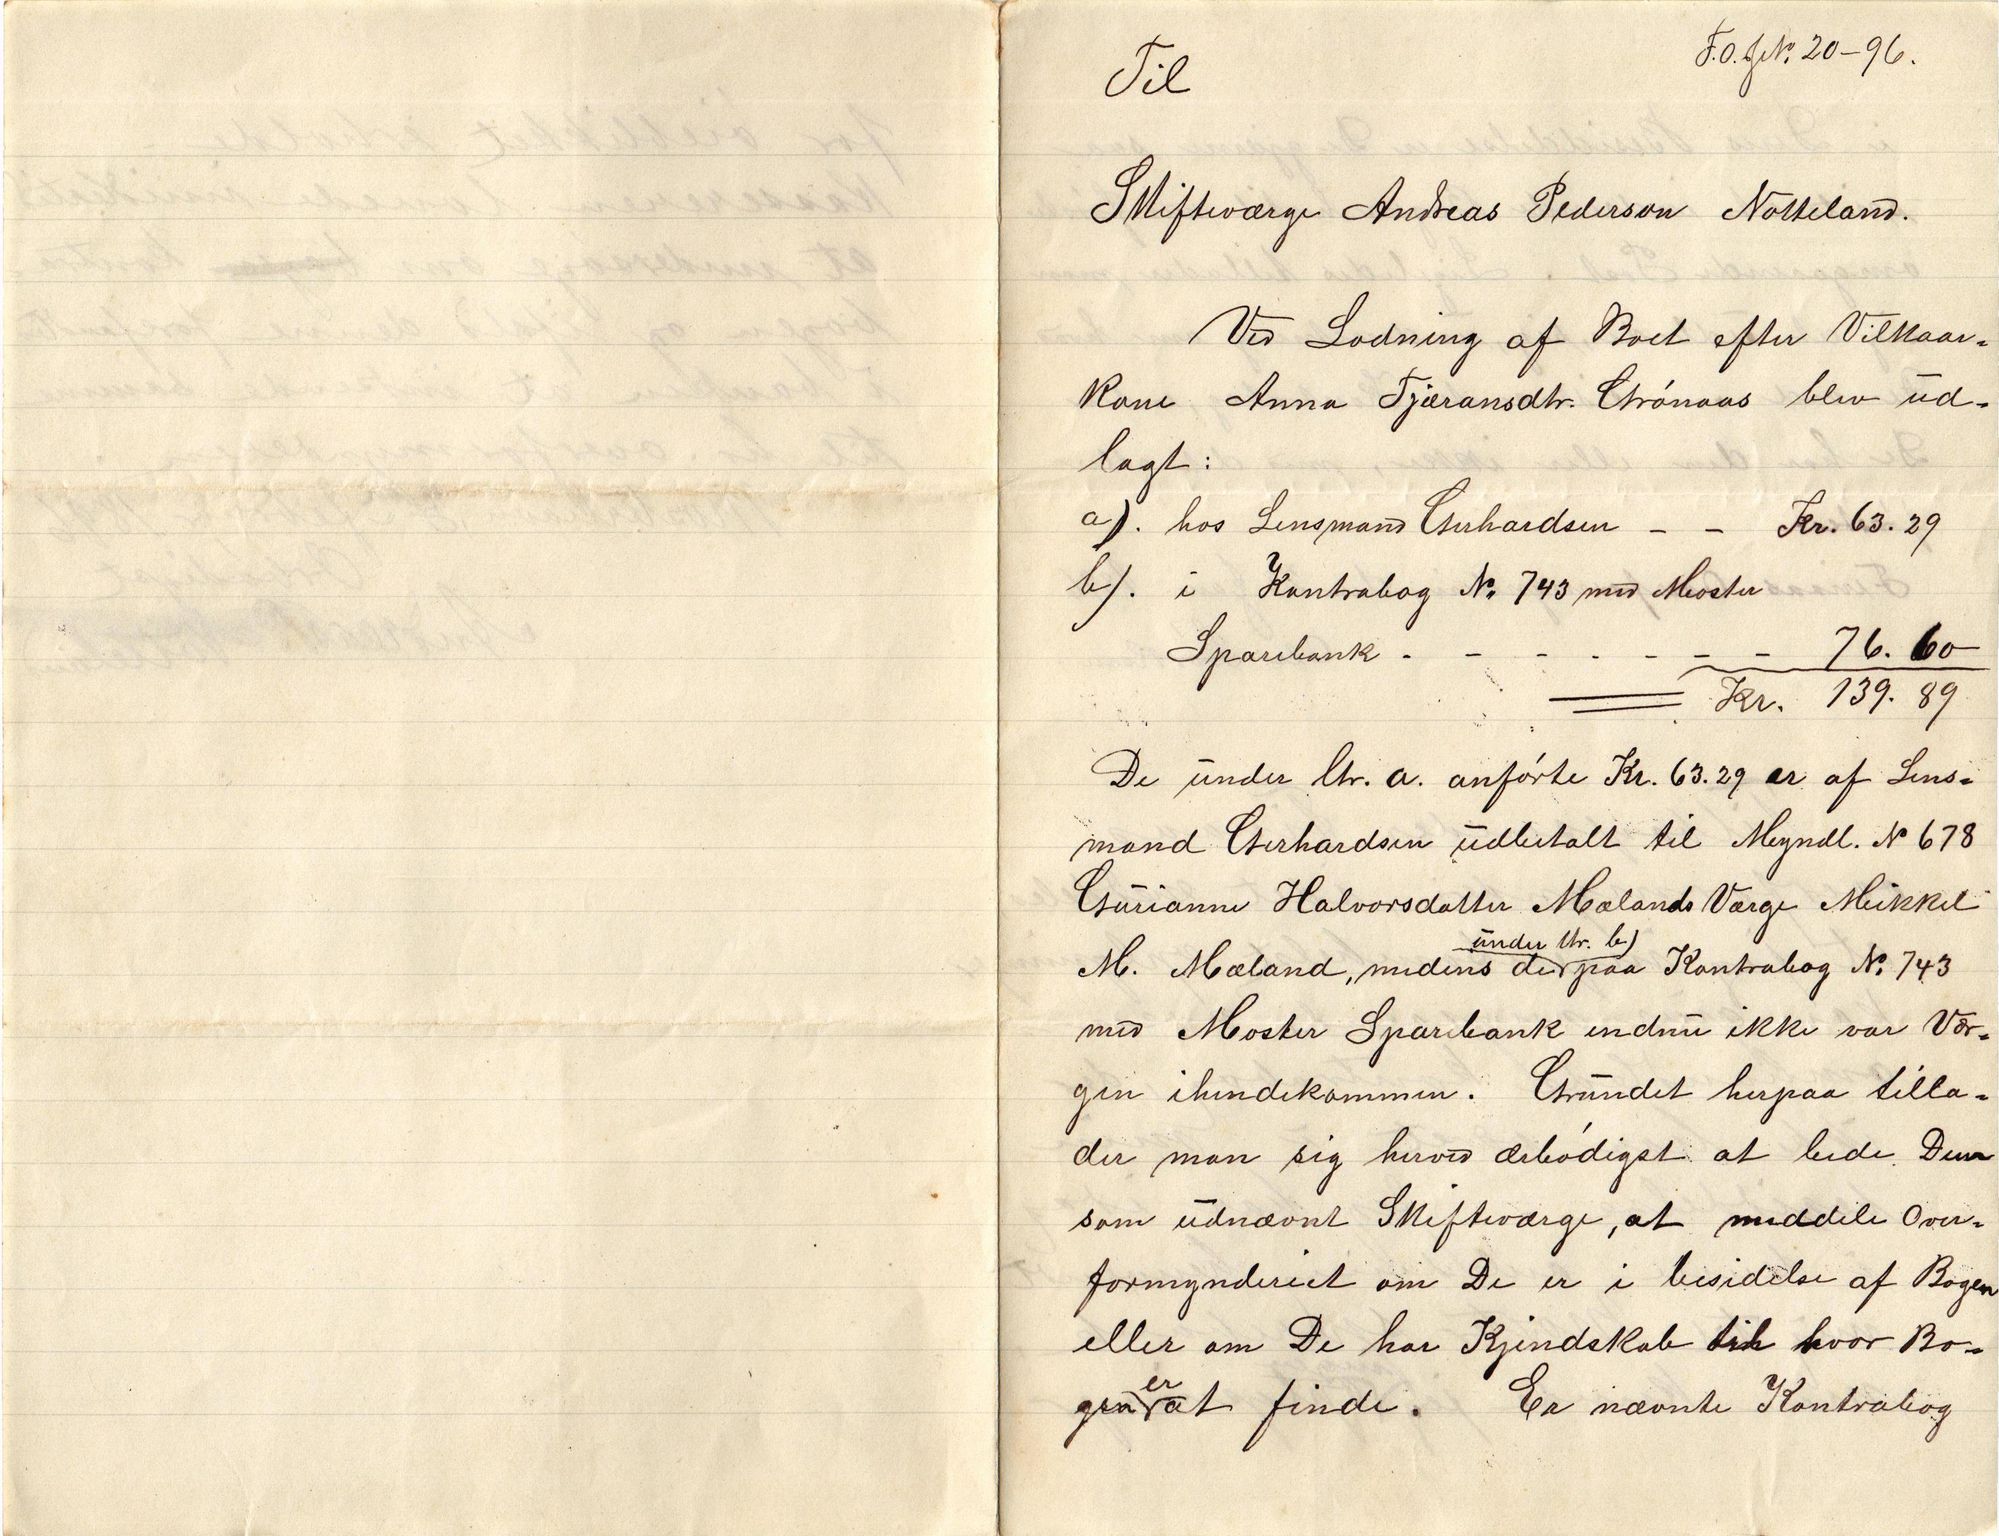 F.O. JN. 20-96.
Til
Skifteværge Andreas Pederson Notteland.
Ved Lodning af Boet efter Vilkaar-
kone Anna Tjæransdtr. Grónaas blev ud-
lagt:
a). hos Lensmand Gerhardsen - - Kr. 63.29
b). i Kontrabog No. 743 med Moster
Sparebank - - - - - - - 76.60
Kr. 139.89
De under ltr. a. anfórte Kr. 63.29 er af Lens-
mand Gerhardsen udbetalt til Myndl. N 678
Gurianne Halvorsdatter Mælands Værge Mikkel
M. Mæland, medens de under ltr. b) paa Kontrabog No. 743
med Moster Sparebank endnu ikke var Vær-
gen ihendekommen. Grundet herpaa tilla-
der man sig herved ærbódigst at bede Dem
som udnævnt Skifteværge, at meddele Over-
formynderiet om De er i besidelse af Bogen
eller om De har Kjendskab til hvor Bo-
gen er at finde. Er nævnte Kontrabog